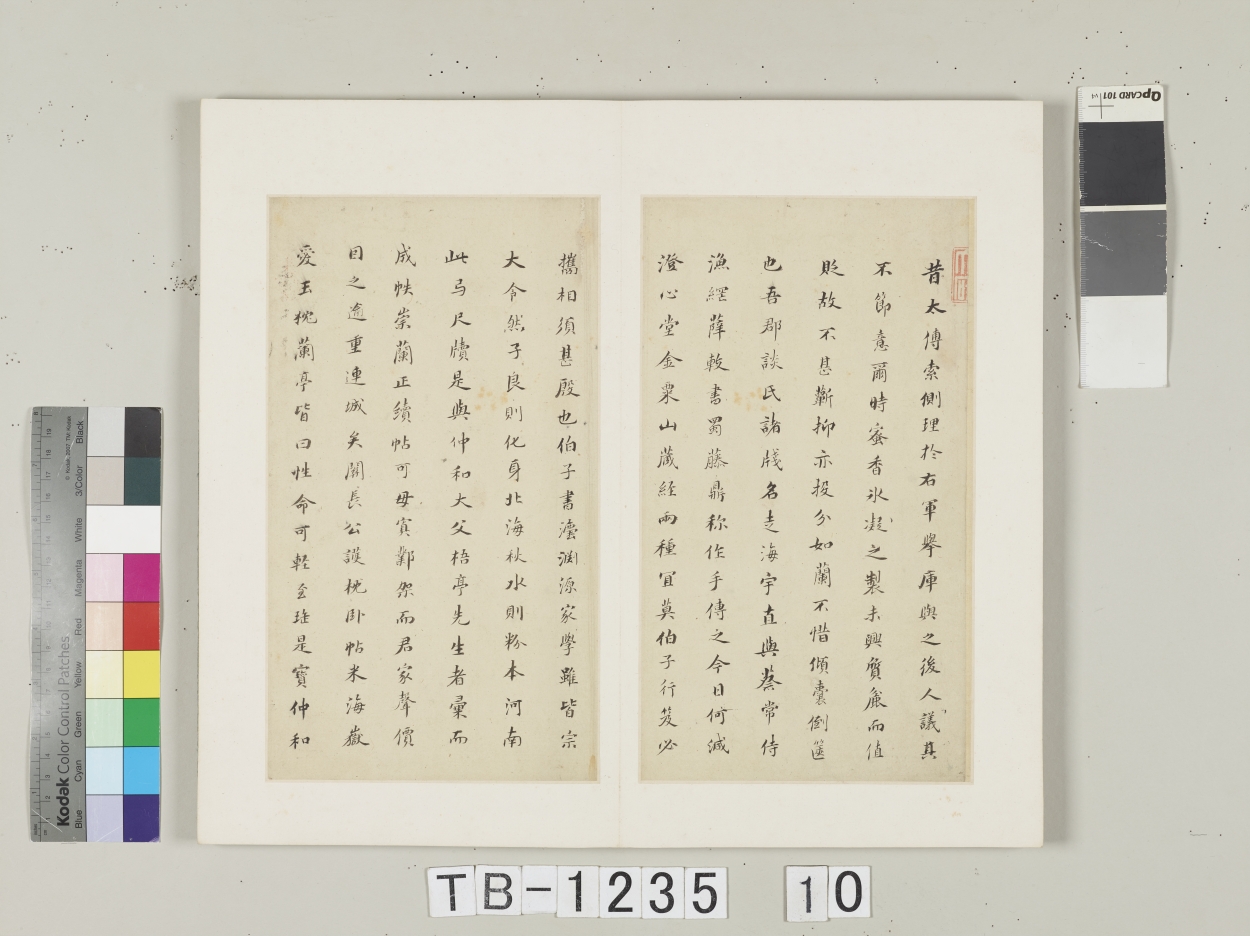 昔太傅索側理於右軍舉庫與之後人議其
不節意爾時蜜香冰凝之製未興質麤而值
貶故不甚靳抑亦投分如蘭不惜傾囊倒篋
也吾郡談氏諸牋名走海宇直與蔡常侍
漁繩薛敕書蜀藤鼎称作手傳之今日何減
澄心堂金粟山藏經兩種冝莫伯子行笈必
攜相須甚殷也伯子書澐渊源家學雖皆宗
大令然子良則化身北海秋水則粉本河南
此与尺牘是與仲和大父梧亭先生者彙而
成帙崇蘭正續帖可毋賓鄴架而君家聲價
目之逾重連城矣關長公護枕卧帖米海嶽
愛玉枕蘭亭皆曰性命可輕至琟是寶仲和
TB-1235 10
QPCARD 101 v4
Kodak Color Control Patches
© Kodak, 2007 TM: Kodak
Blue Cyan Green Yellow Red Magenta White 3/Color Black